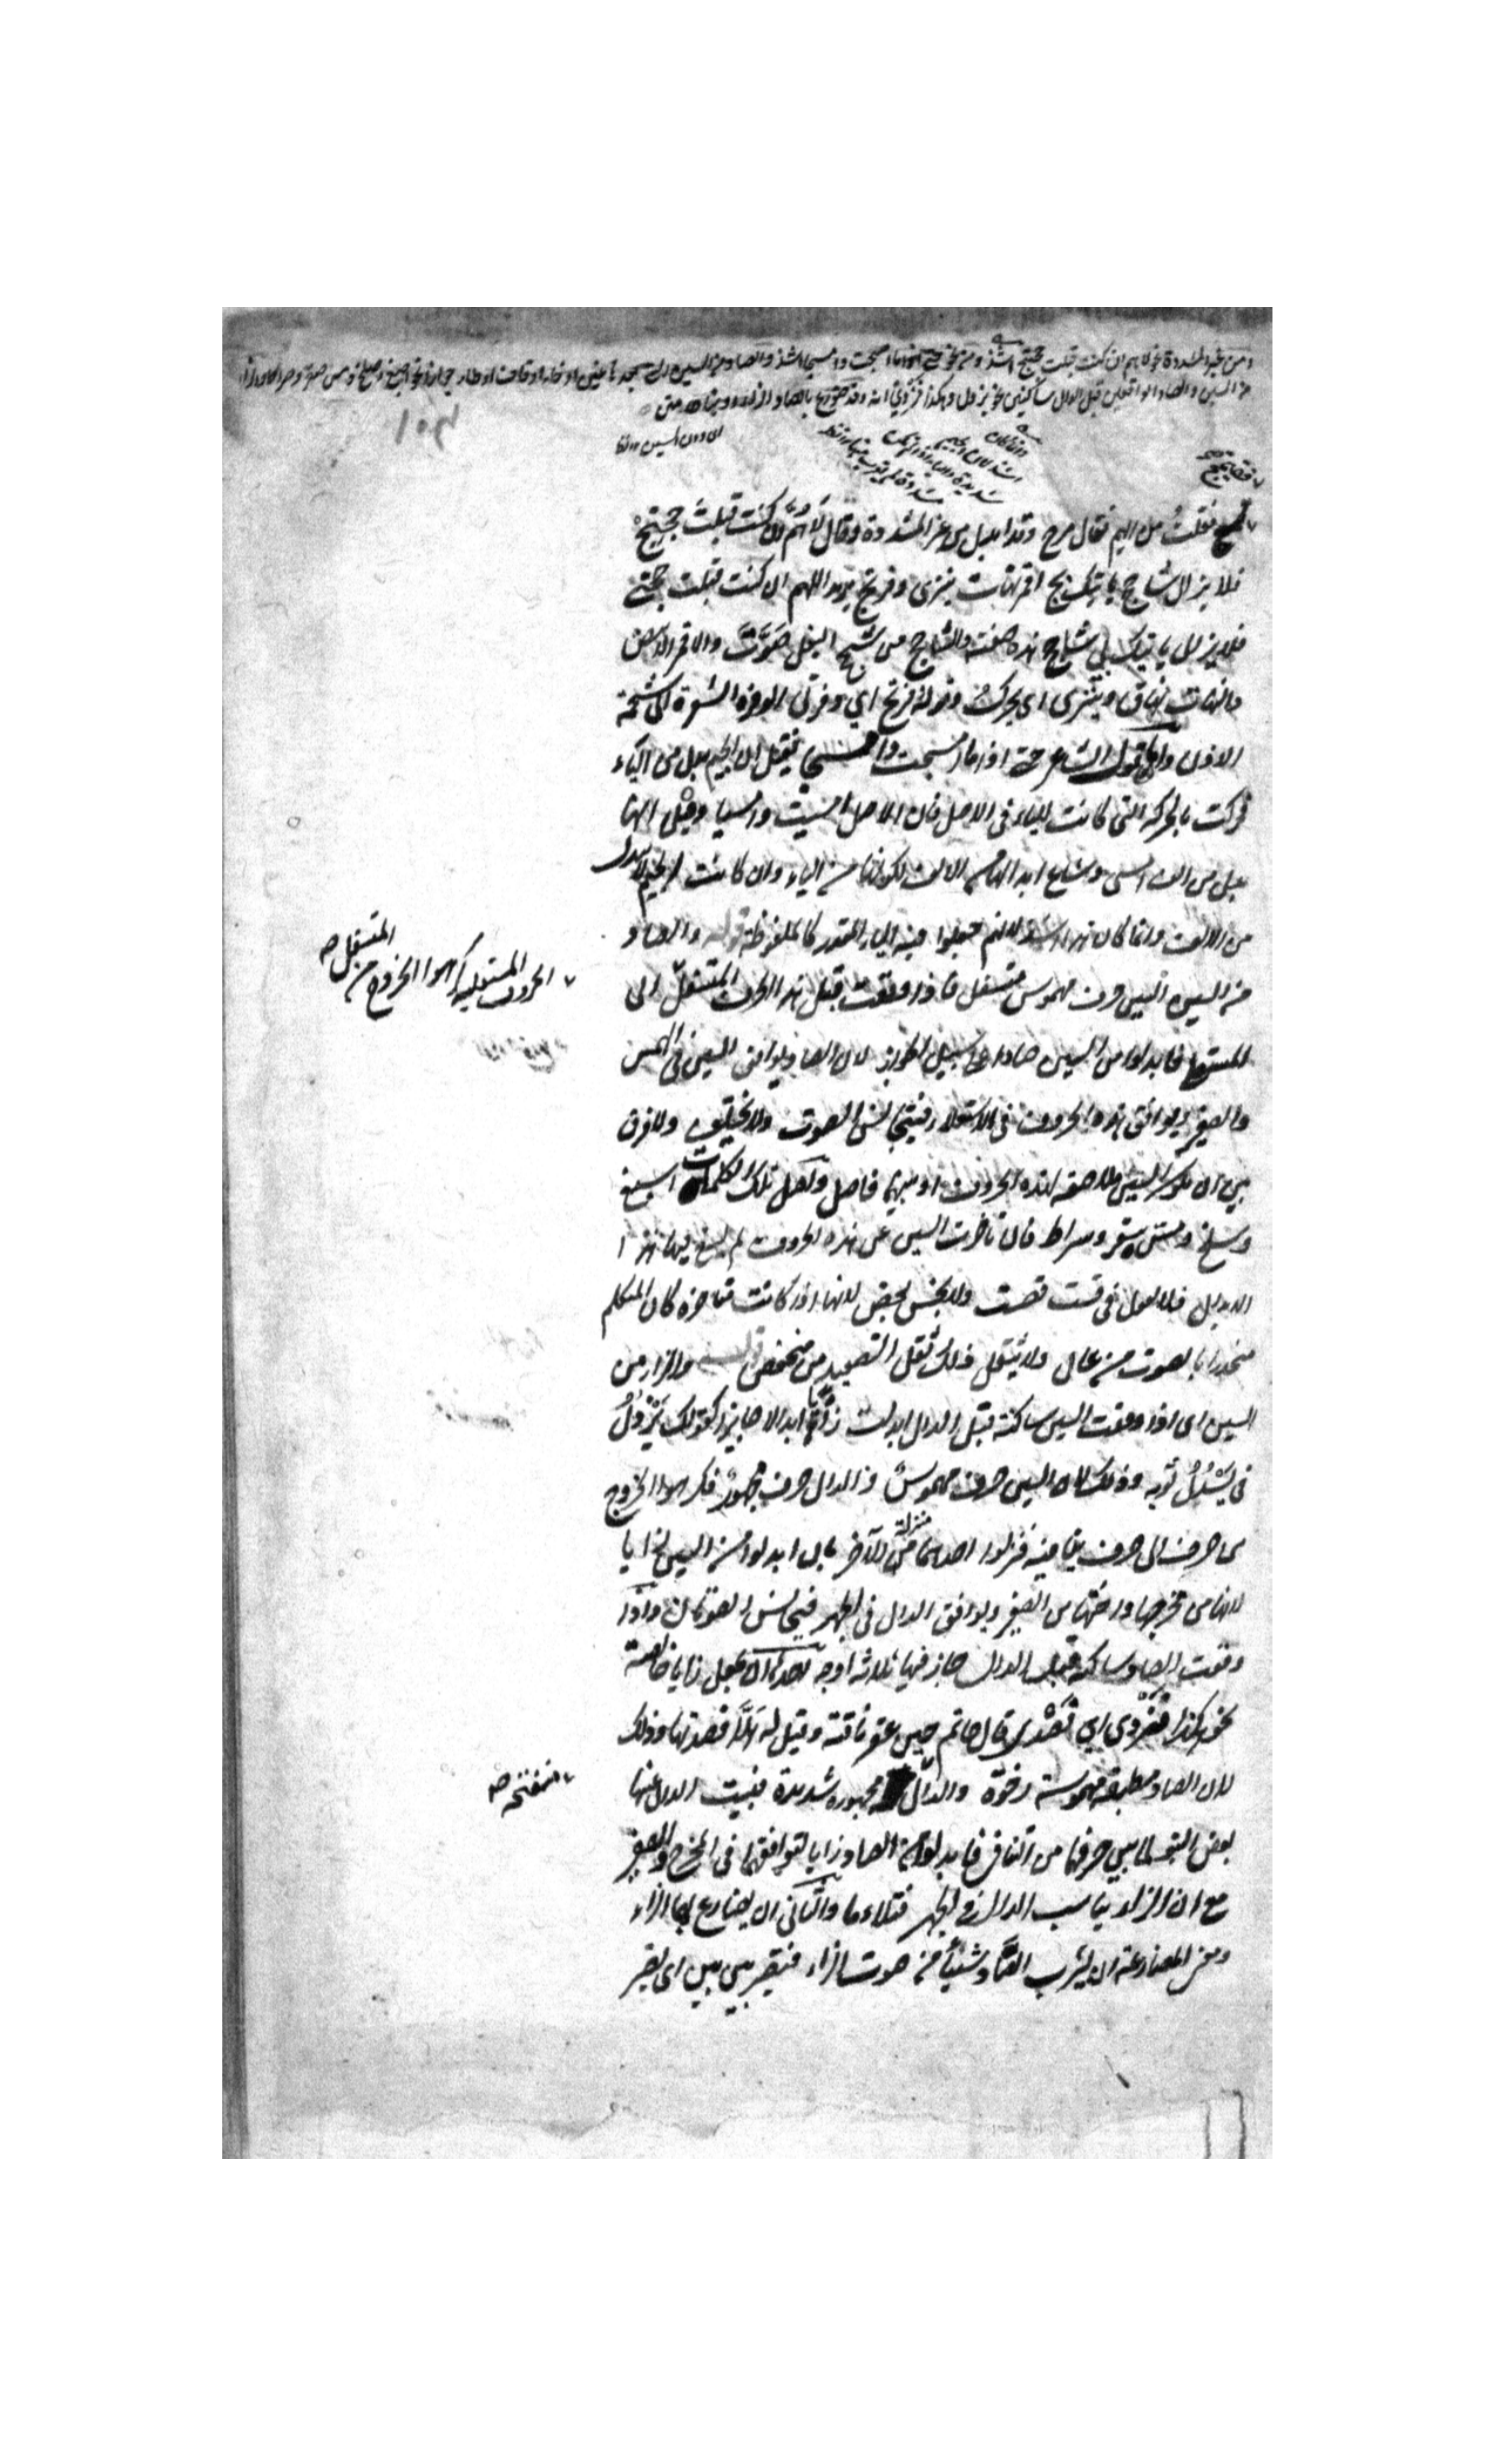 ومن غير المشددة نحو لاهم ان كنت قبلت حجتج اشذ ومن نحو حتى اذا ما امسجت وامسجا اشذ والصاد من السين التي بعدها غين او خاء او قاف او طاء جوازا نحو اصبغ وصلخ ومس صقر وصراط والزاء
من السين والصاد الواقعتين قبل الدال ساكنتين نحو يزدل وهكذا فزدي انه وقد ضورع بالصاد الزاء دونها متن
١٥٣
فقيمج
فقلت من ايهم فقال مرج وقد ابدل من غير المشددة وقال لاهم ان كنت قبلت حجتج
فلا يزال شاحج ياتيك بج اقمر نهات ينزى وفرتج يريد اللهم ان كنت قبلت حجتي
فلا يزال ياتيك بي شاحج هذه صفته والشاحج من شحج البغل صوت والاقمر الابيض
والنهات نهاق وينزى اي يحرك وقوله فرتج اي وفرتي الوفرة الشعرة الى شحمة
الاذن واما قول الشاعر حتى اذا ما امسجت وامسجا فقيل ان الجيم بدل من الياء
فحركت بالحركة التي كانت للياء في الاصل فان الاصل امسيت وامسيا وقيل انها
بدل من الف امسى وساغ ابدالها من الالف لكونها من الياء وان كانت الجيم لا تبدل
من الالف وانما كان هذا اشذ لانهم جعلوا فيه الياء المقدر كالملفوظة قوله والصاد
من السين السين حرف مهموس متسفل فاذا وقعت قبل هذه الحرف المتسفل الى
الحروف المستعلية كرهوا الخروج من المتسفل صح
المستعلي فابدلوا من السين صادا على سبيل الجواز لان الصاد يوافق السين في الهمس
والصفير ويوافق هذه الحروف في الاستعلاء فيتجانس الصوت ولا يختلف ولا فرق
بين ان يكون السين ملاصقه لهذه الحروف او بينهما فاصل ولعل تلك الكلمات اسبغ
وسلخ ومس سقر وسراط فان تاخرت السين عن هذه الحروف لم يسغ فيها هذا
الابدال فلا تقول في قست قصت ولا يخس يخص لانها اذا كانت متاخرة كان المتكلم
منحدرا بالصوت من عال ولا يثقل ذلك ثقل التصعيد من منخفض قوله والزاء من
السين اي اذا وقعت السين ساكنة قبل الدال ابدلت زايا ابدالا جايزا كقولك يزدل
في يسدل ثوبه وذلك لان السين حرف مهموس والدال حرف مجهور فكرهوا الخروج
من حرف الى حرف ينافيه فنزلوا احدهما منزلة الآخر بان ابدلوا من السين زايا
لانها من مخرجها واختها من الصفير ويوافق الدال في الجهر فيتجانس الصوتان واذا
وقعت الصاد ساكنة قبل الدال جاز فيها ثلاثة اوجه احدها ان تجعل زايا خالصة
نحو هكذا فزدي اي فصدي قال حاتم حين عقر ناقته وقيل له هلا فصدتها وذلك
لان الصاد مطبقة مهموسة رخوة والدال مجهورة شديدة فنبت الدال عنها
منفتحة صح
بعض النبو لما بين حرفيهما من التنافي فابدلوا من الصاد زايا لتوافقهما في المخرج والصفير
مع ان الزاء يناسب الدال في الجهر فتلاءما والثاني ان يضارع بها الزاء
ومعنى المضارعة ان يشرب الصاد شيئا من صوت الزاء فتصير بين بين اي يصير